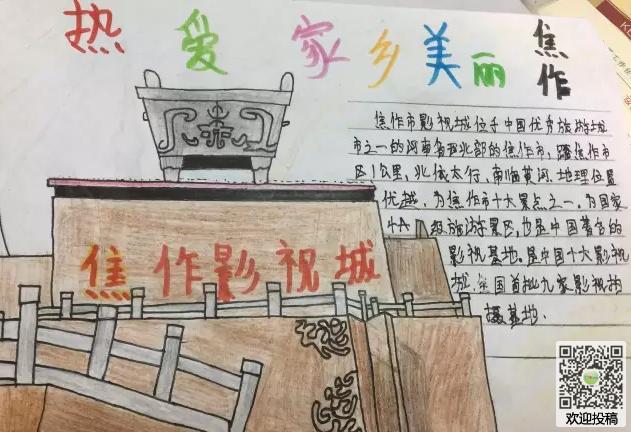 热爱家乡美丽焦作
焦作市影视城位于中国优秀旅游城
市之一的河南省西北部的焦作市，距焦作市
区1公里，北依太行，南临黄河，地理位置
优越，为焦作市十大景点之一，为国家
4A级旅游景区，也是中国著名的
影视基地，是中国十大影视
城，全国首批九家影视拍
摄基地．
焦作影视城
欢迎投稿